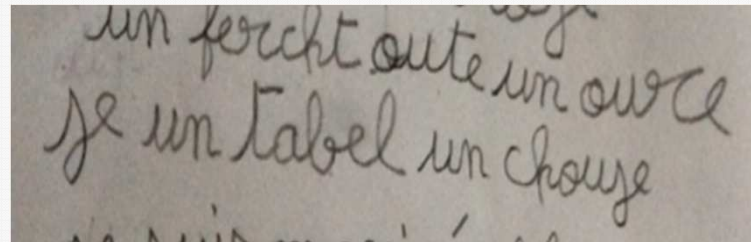 un fercht oute un ource
je un tabel un chouse
je suis